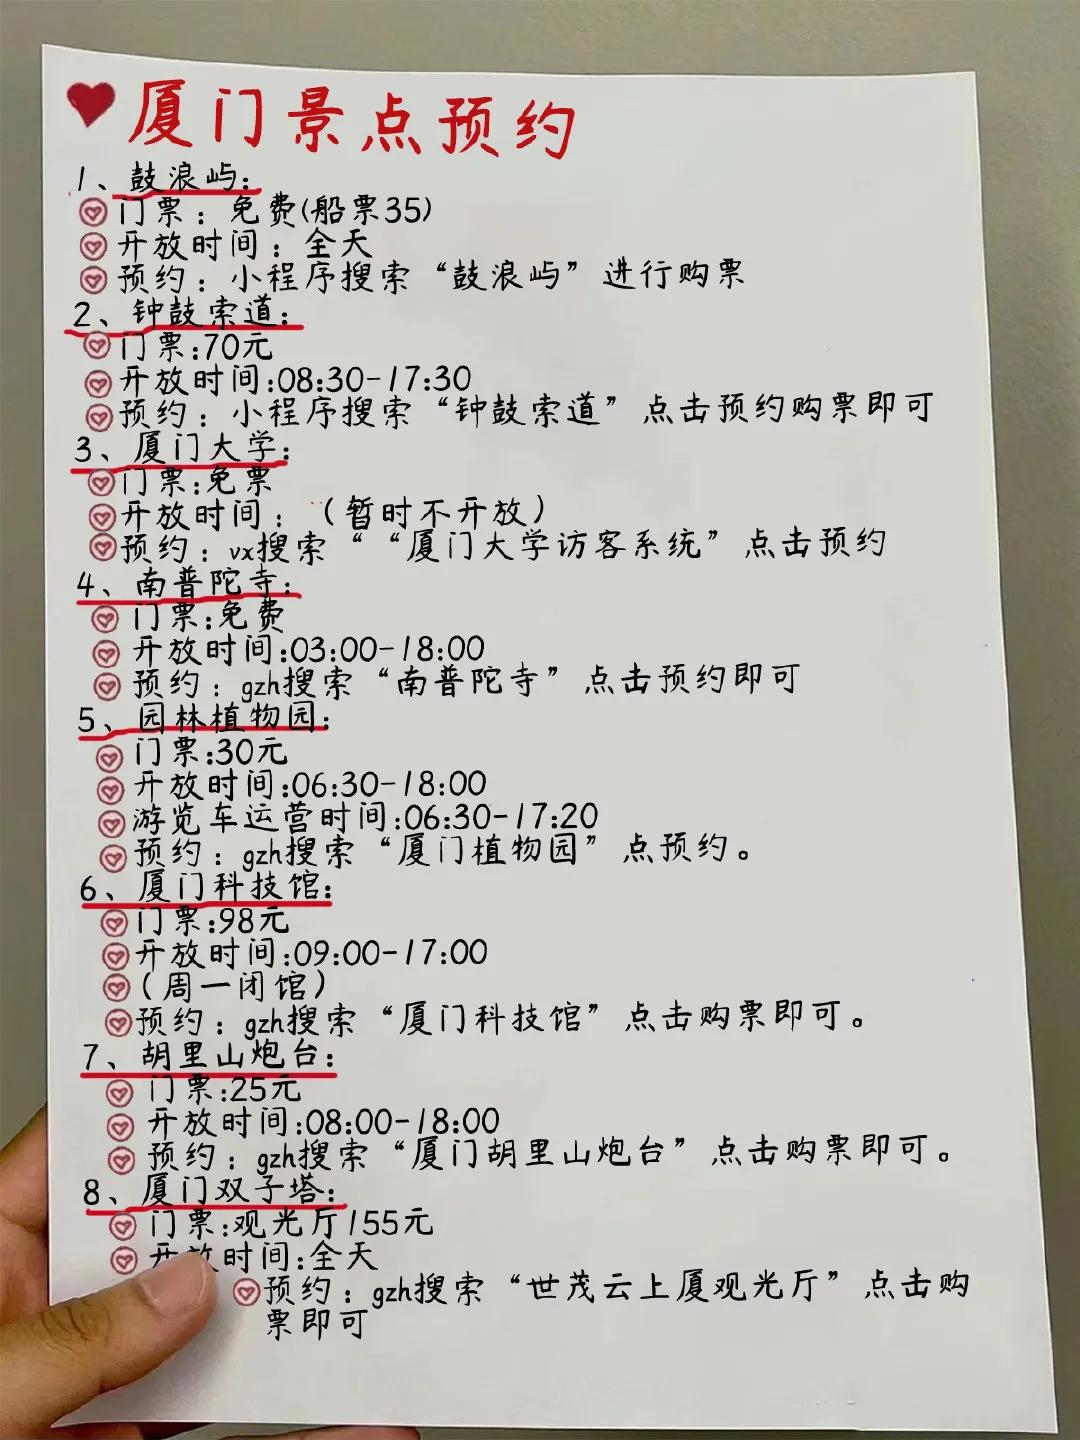 厦门景点预约
1、鼓浪屿:
门票：免费(船票35)
开放时间：全天
预约：小程序搜索“鼓浪屿”进行购票
2、钟鼓索道:
门票:70元
开放时间:08:30-17:30
预约：小程序搜索“钟鼓索道”点击预约购票即可
3、厦门大学:
门票:免票
开放时间：（暂时不开放）
预约：vx搜索““厦门大学访客系统”点击预约
4、南普陀寺:
门票:免费
开放时间:03:00-18:00
预约：gzh搜索“南普陀寺”点击预约即可
5、园林植物园:
门票:30元
开放时间:06:30-18:00
游览车运营时间:06:30-17:20
预约：gzh搜索“厦门植物园”点预约。
6、厦门科技馆:
门票:98元
开放时间:09:00-17:00
(周一闭馆)
预约：gzh搜索“厦门科技馆”点击购票即可。
7、胡里山炮台:
门票:25元
开放时间:08:00-18:00
预约：gzh搜索“厦门胡里山炮台”点击购票即可。
8、厦门双子塔:
门票:观光厅155元
开放时间:全天
预约：gzh搜索“世茂云上厦观光厅”点击购
票即可